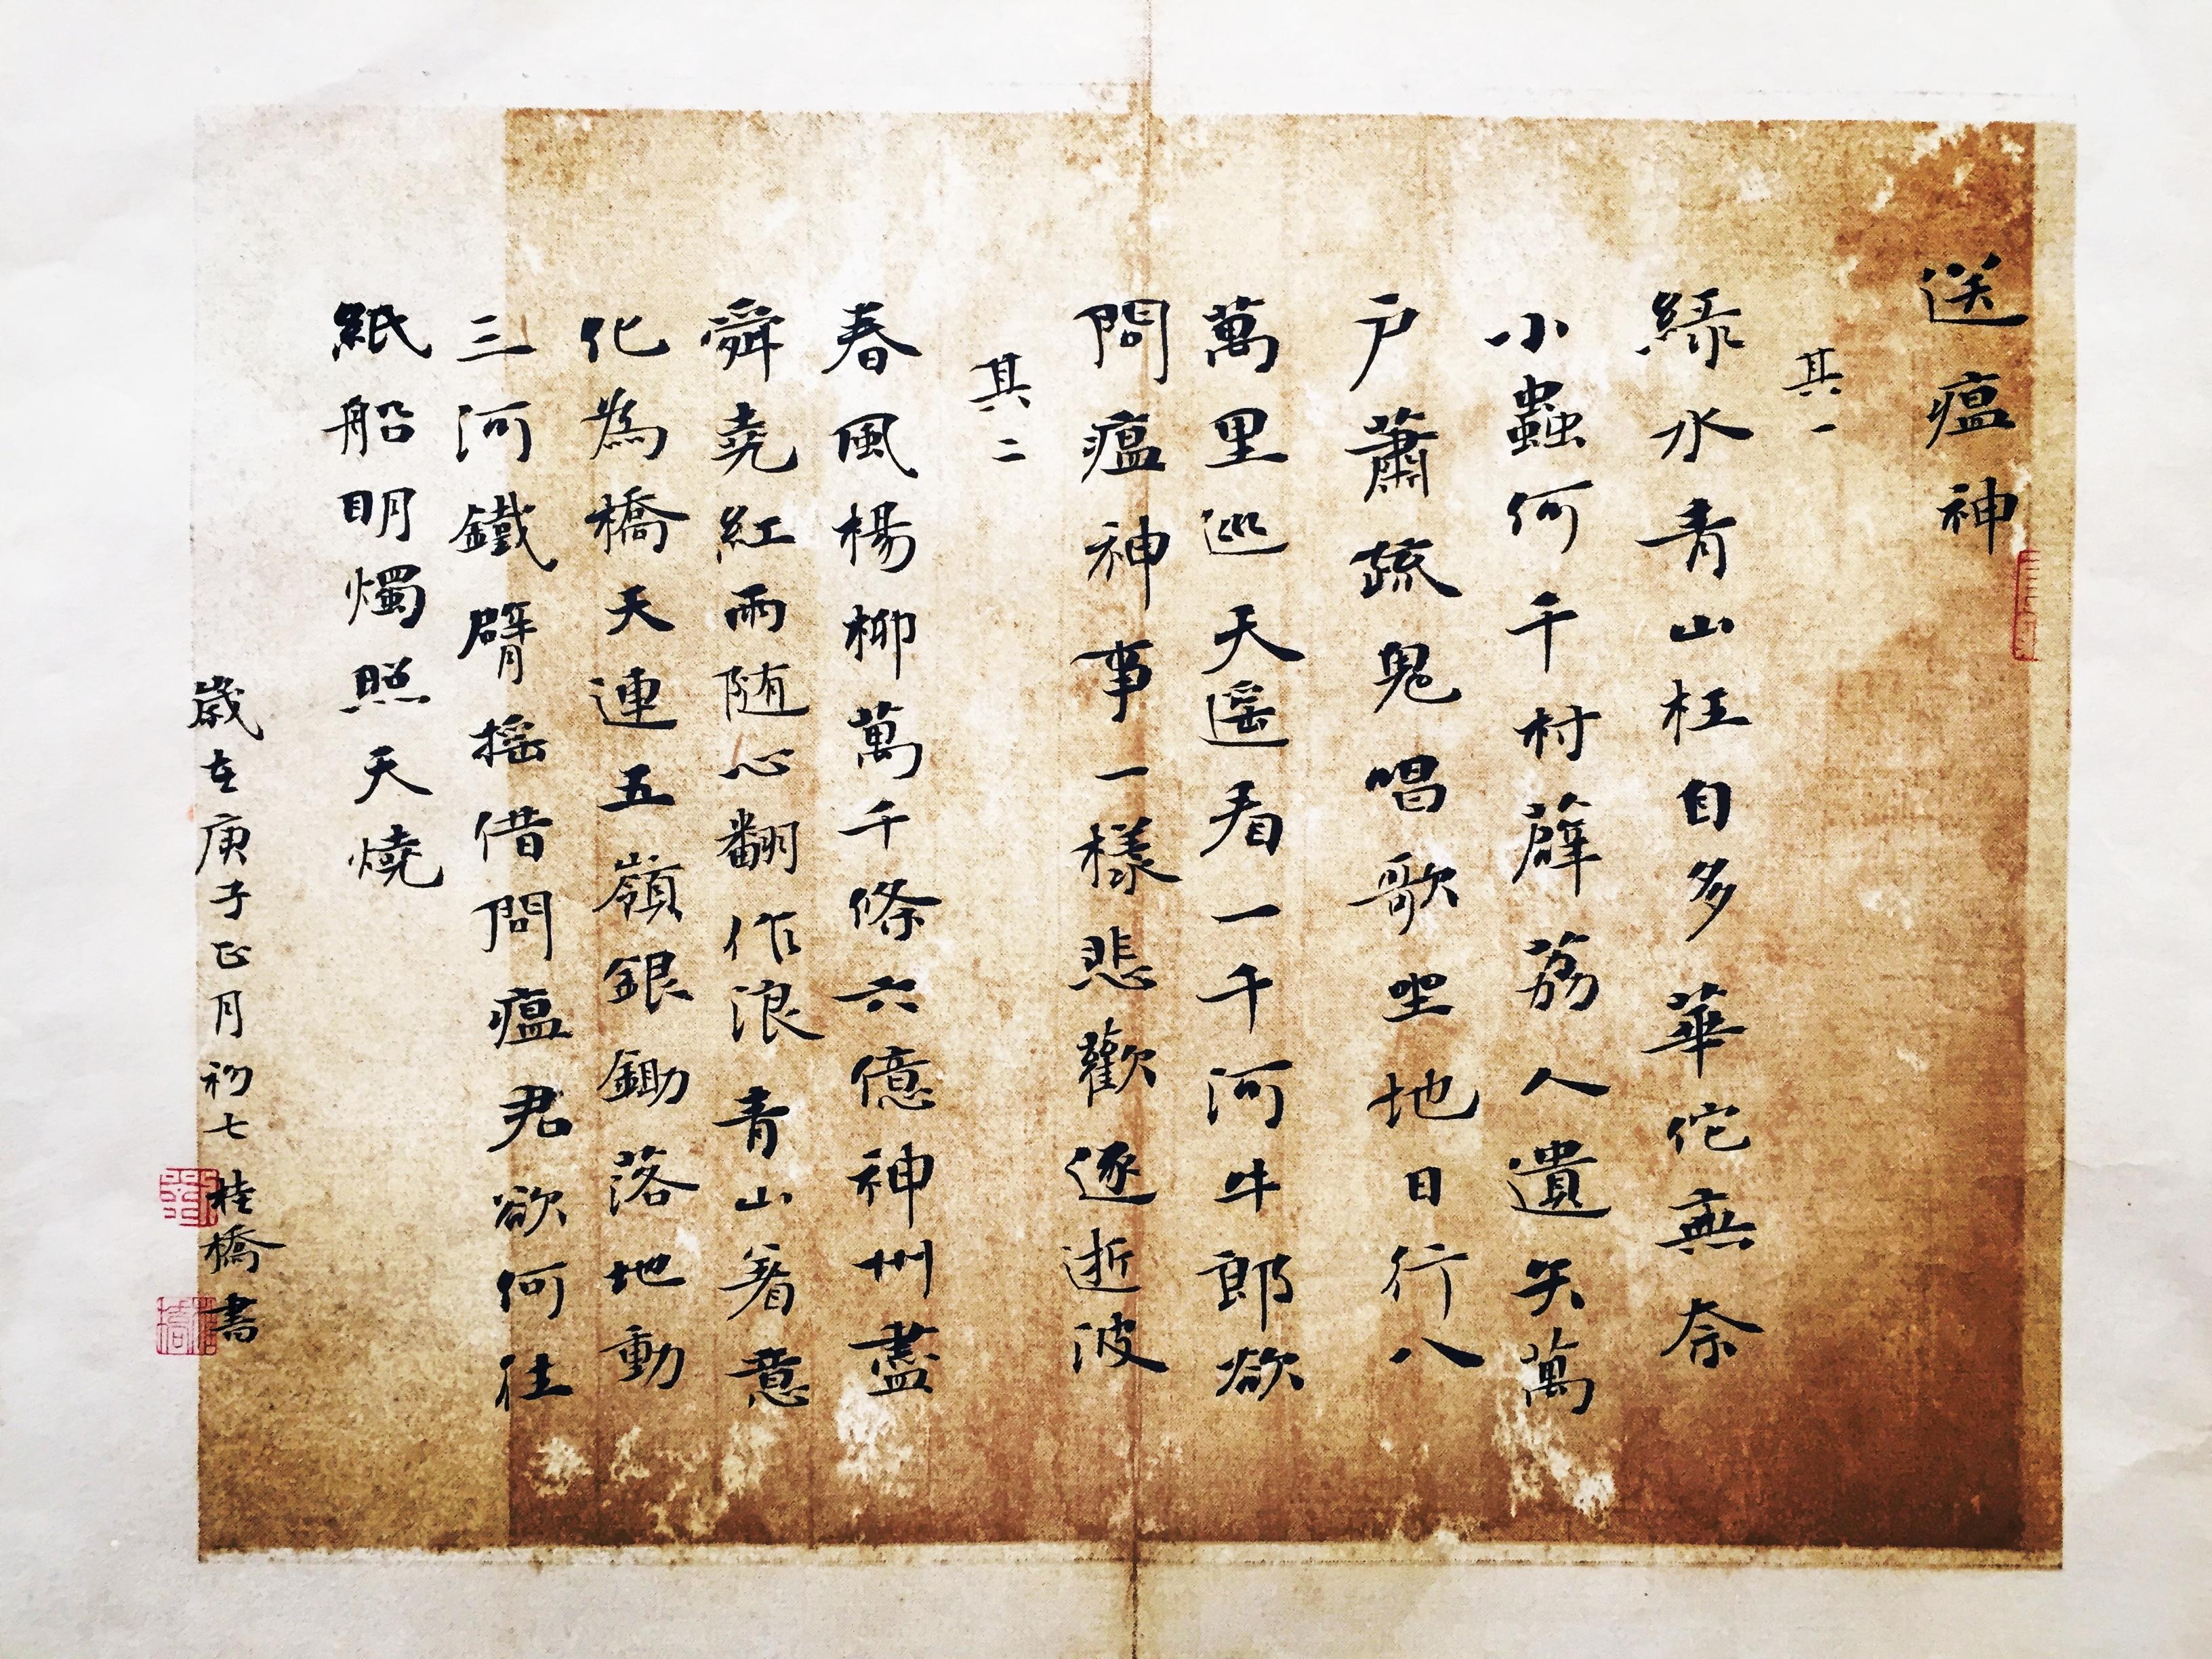 送瘟神
其一
綠水青山枉自多華佗無奈
小蟲何千村薜荔人遺矢萬
户蕭疏鬼唱歌坐地日行八
萬里巡天遥看一千河牛郎欲
問瘟神事一樣悲歡逐逝波
其二
春風楊柳萬千條六億神州盡
舜堯紅雨随心翻作浪青山着意
化為橋天連五嶺銀鋤落地動
三河鐵臂摇借問瘟君欲何往
紙船明燭照天燒
歲在庚子正月初七桂橋書